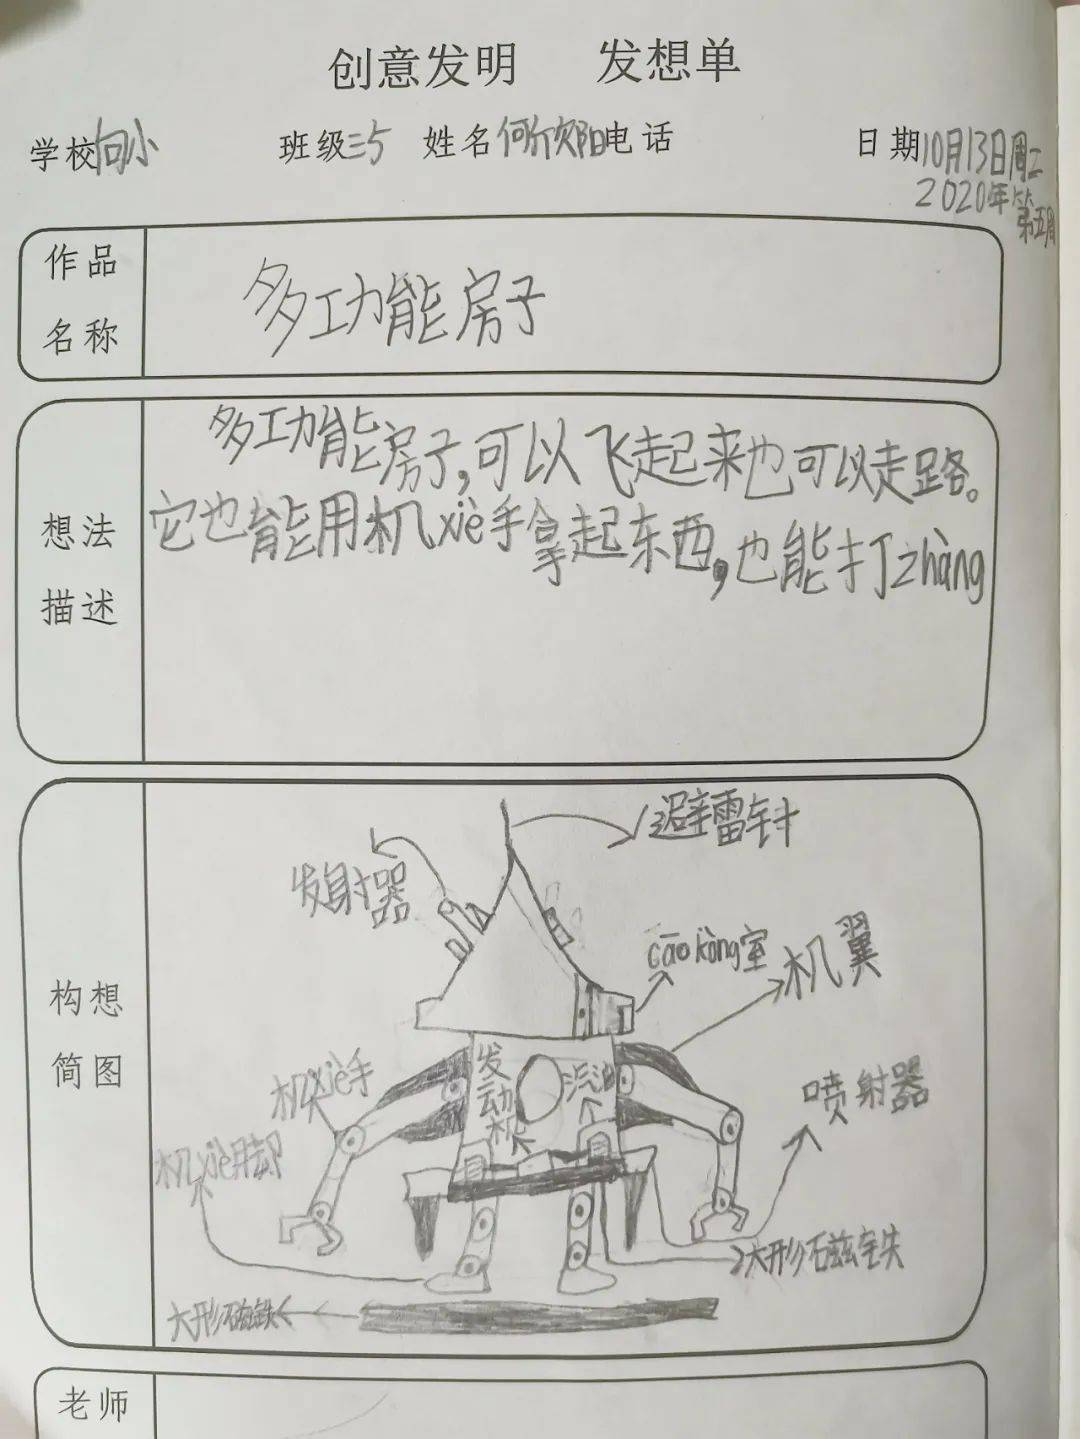 创意发明 发想单
学校向小 班级三5 姓名何 欣阳电话 日期10月13日周二
2020年第五周
作品
名称
多功能房子
想法
描述
多功能房子,可以飞起来也可以走路。
它也能用机xiè手拿起东西,也能打zhàng
构想
简图
避雷针
发射器
cāo kòng室
机翼
发动机
汽油
机xiè手
喷射器
机xiè脚
大形磁铁
大形磁铁
老师